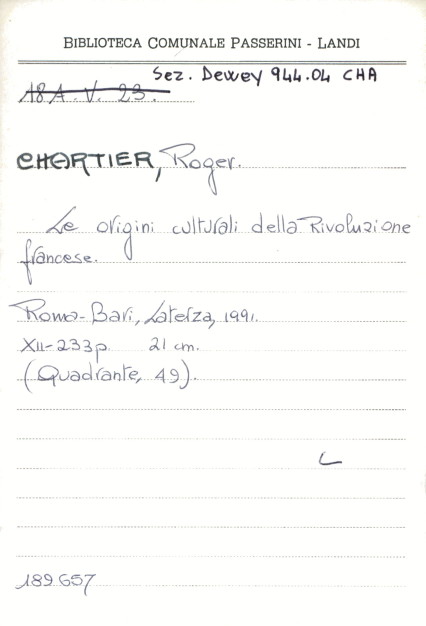 BIBLIOTECA COMUNALE PASSERINI - LANDI
Sez. Dewey 944.04 CHA
18 A. V. 23.
CHARTIER, Roger.
Le origini culturali della Rivoluzione
francese.
Roma-Bari, Laterza, 1991.
XII-233 p. 21 cm.
(Quadrante, 49).
L
189657